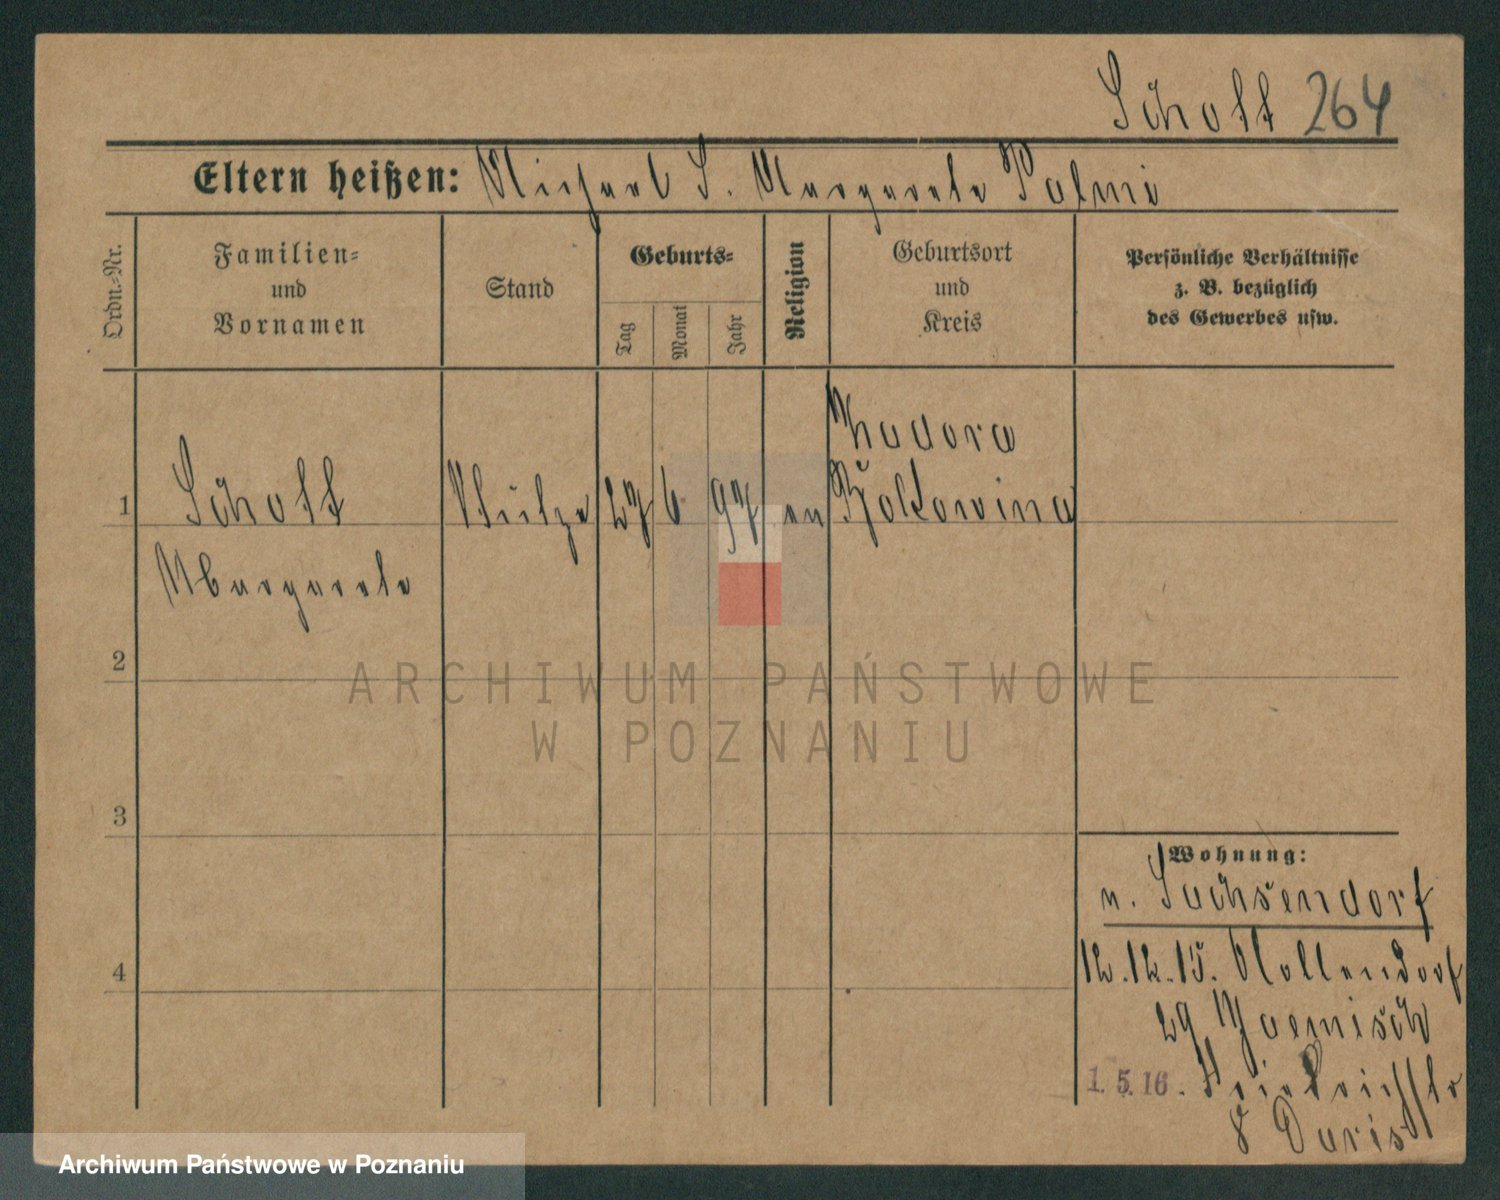 Schott 264
Eltern heißen: Michael S. Margarete Palmi
Ordn.-Nr.
Familien-
und
Vornamen
Stand
Geburts-
Tag
Monat
Jahr
Religion
Geburtsort
und
Kreis
Persönliche Verhältnisse
z. B. bezüglich
des Gewerbes usw.
1 Schott Stütze 27 6 97 ev
Margarete
2
3
4
ARCHIWUM PAŃSTWOWE
W POZNANIU
Wohnung:
n. Sachsendorf
12.12.15. Nollendorf
29
1.5.16. Friedrichstr
8
Archiwum Państwowe w Poznaniu